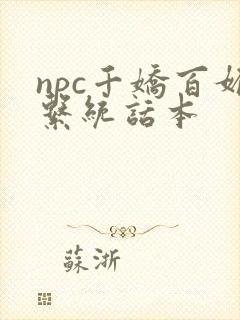 npc千嬌百媚
繫統話本
蘇浙